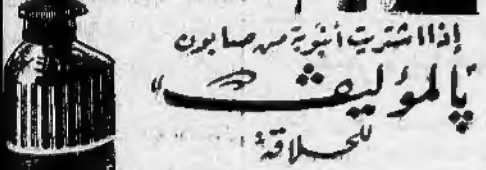 إذا اشتريت أنبوبة من صابون
"پالمؤليف"
للحلاقة